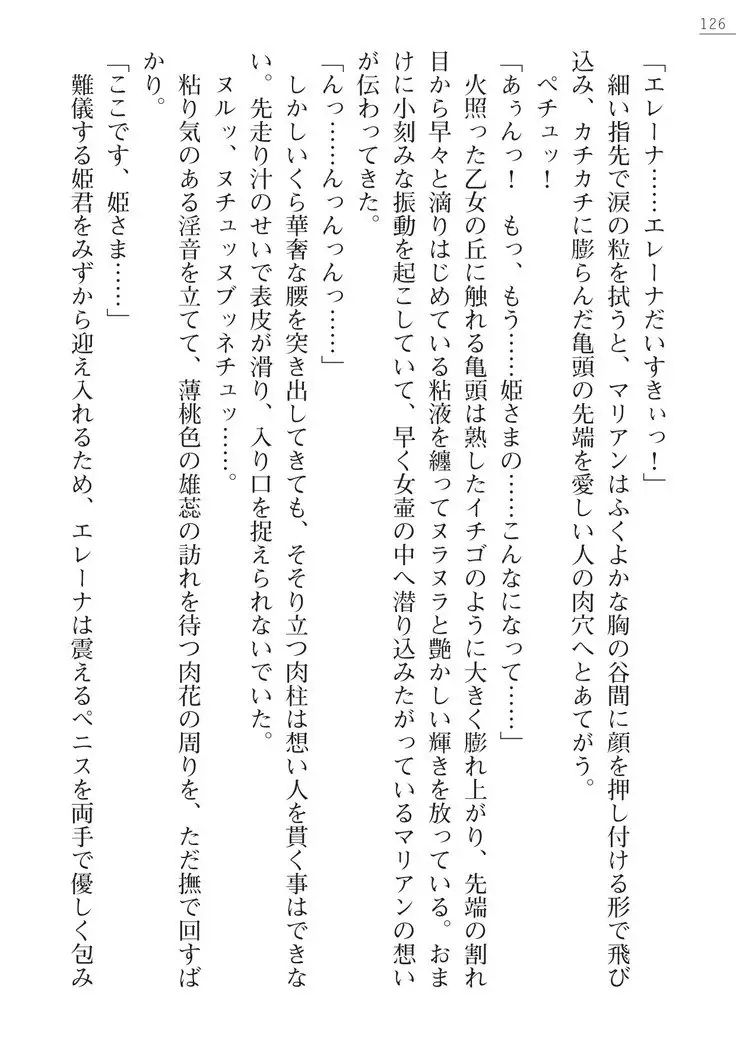 126
「エレーナ……エレーナだいすきぃっ！」
　細い指先で涙の粒を拭うと、マリアンはふくよかな胸の谷間に顔を押し付ける形で飛び
込み、カチカチに膨らんだ亀頭の先端を愛しい人の肉穴へとあてがう。
　ペチュッ！
「あぅんっ！　もっ、もう……姫さまの……こんなになって……」
　火照った乙女の丘に触れる亀頭は熟したイチゴのように大きく膨れ上がり、先端の割れ
目から早々と滴りはじめている粘液を纏ってヌラヌラと艶かしい輝きを放っている。おま
けに小刻みな振動を起こしていて、早く女壷の中へ潜り込みたがっているマリアンの想い
が伝わってきた。
「んっ……んっんっんっ……」
　しかしいくら華奢な腰を突き出してきても、そそり立つ肉柱は想い人を貫く事はできな
い。先走り汁のせいで表皮が滑り、入り口を捉えられないでいた。
　ヌルッ、ヌチュッヌブッネチュッ……。
　粘り気のある淫音を立てて、薄桃色の雄蕊の訪れを待つ肉花の周りを、ただ撫で回すば
かり。
「ここです、姫さま……」
　難儀する姫君をみずから迎え入れるため、エレーナは震えるペニスを両手で優しく包み